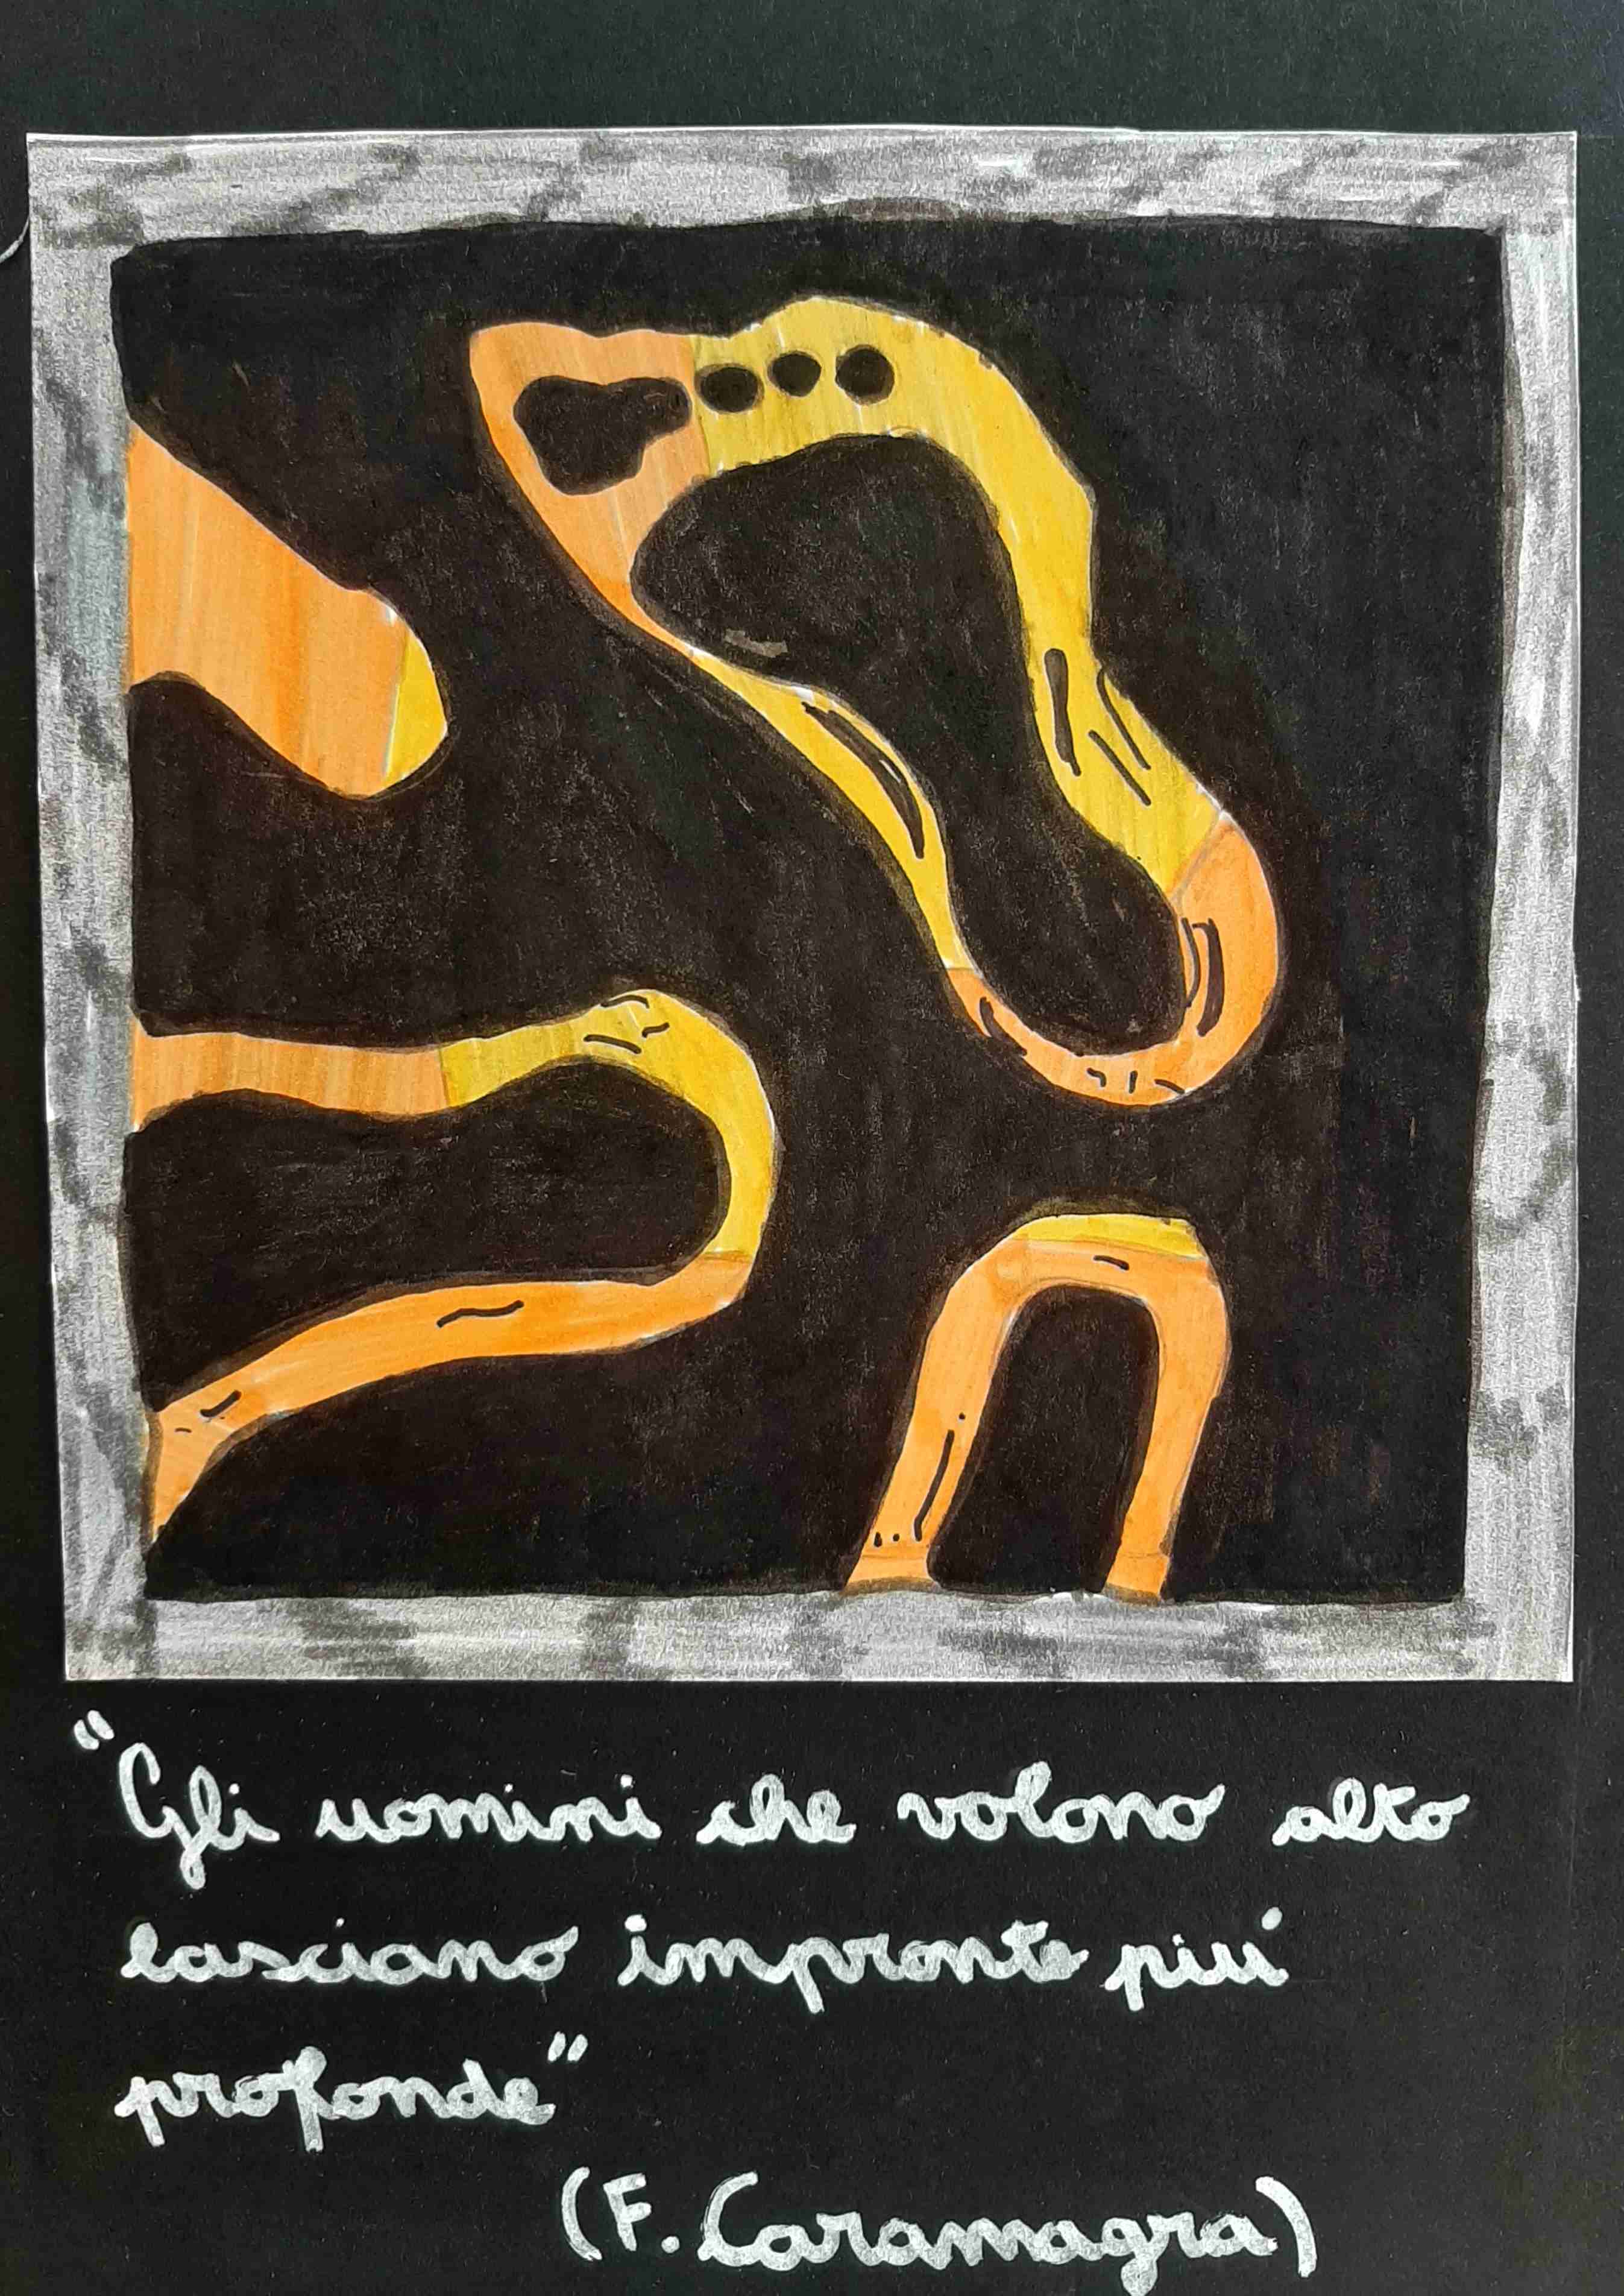 "Gli uomini che volano alto
lasciano impronte più
profonde"
(F. Caramagra)